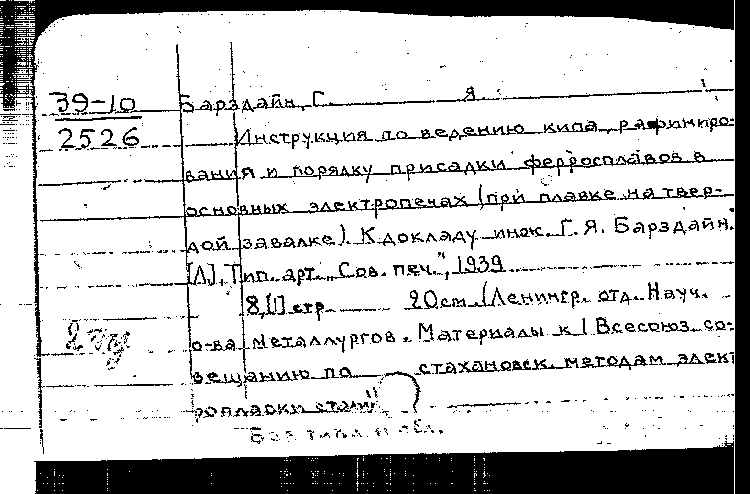 39-10
2526
Барздайн, Г. Я.
Инструкция по ведению кипа, рафиниро-
вания и порядку присадки ферросплавов в
основных электропечах (при плавке на твер-
дой завалке). К докладу инж. Г. Я. Барздайн.
[Л], Тип. арт. „Сов. печ.", 1939
8,[1] стр. 20 см. (Ленингр. отд. Науч.
о-ва металлургов. Материалы к I Всесоюз. со-
вещанию по стахановск. методам элект
роплавки стали"
Без титл. л.